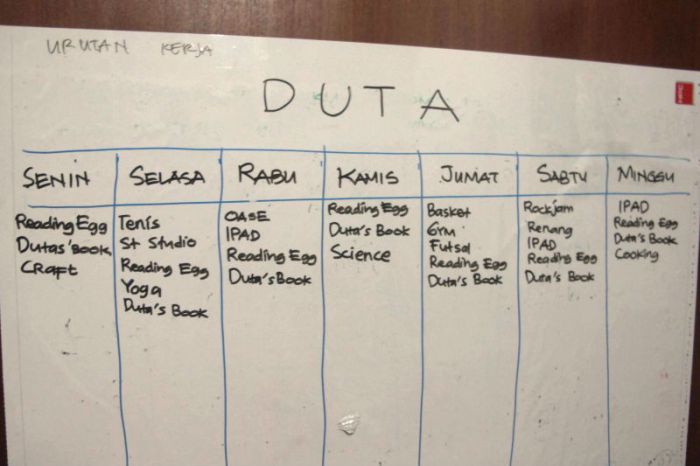 URUTAN KERJA
DUTA
SENIN SELASA RABU KAMIS JUMAT SABTU MINGGU
Reading Egg
Dutas'Book
Craft
Tenis
St Studio
Reading Egg
Yoga
Duta's Book
OASE
IPAD
Reading Egg
Duta'sBook
Reading Egg
Duta's Book
Science
Basket
Gym
Futsal
Reading Egg
Duta's Book
Rockjam
Renang
IPAD
Reading Egg
Duta's Book
IPAD
Reading Egg
Duta's Book
Cooking